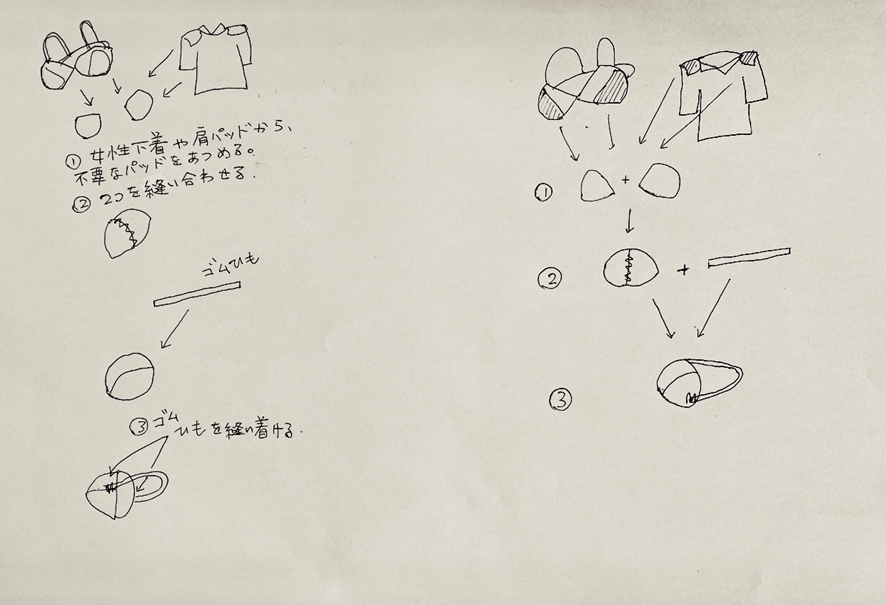 ① 女性下着や肩パッドから、
不要なパッドをあつめる。
② 2コを縫い合わせる.
ゴムひも
③ ゴム
ひもを縫い着ける.
①
+
②
+
③